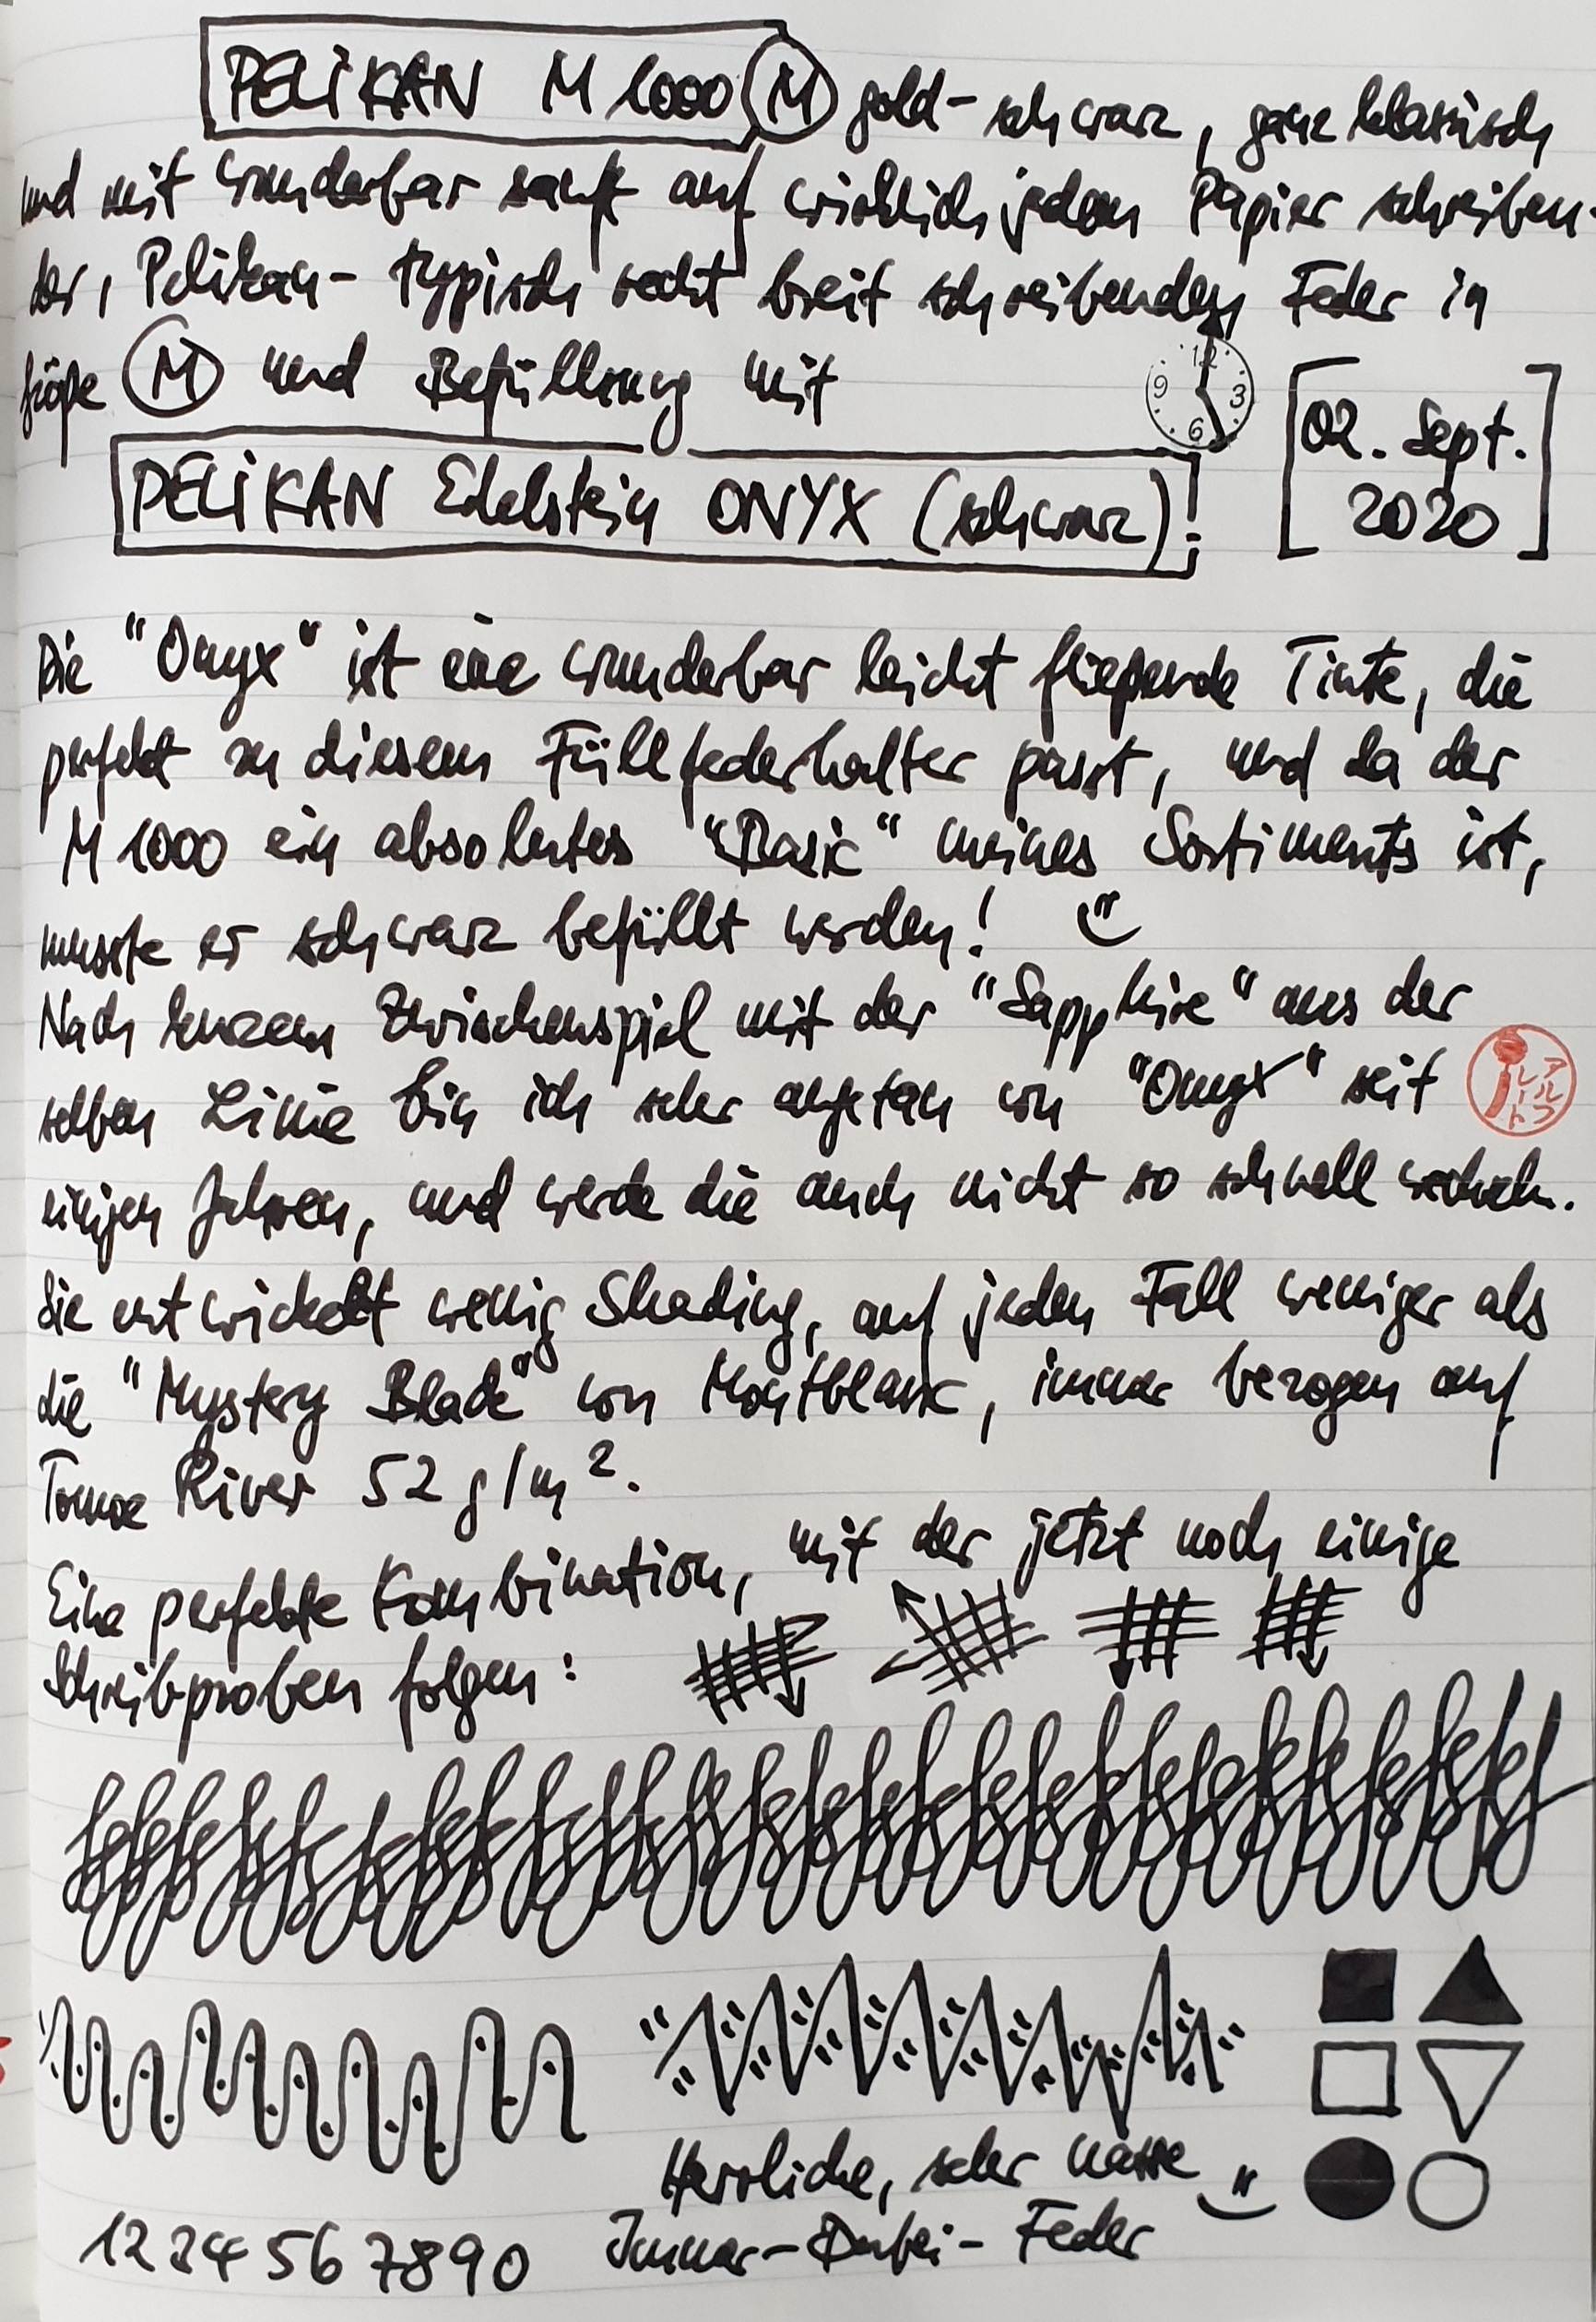 PELIKAN M1000 (M) gold-schwarz, ganz klassisch
und mit wunderbar sanft auf wirklich jedem Papier schreiben-
der, Pelikan-typisch recht breit schreibenden Feder in
größe (M) und Befüllung mit
12
9 3
6
[02. Sept.
2020]
PELIKAN Edelstein ONYX (schwarz)!
Die "Onyx" ist eine wunderbar leicht fließende Tinte, die
perfekt zu diesem Füllfederhalter passt, und da der
M1000 ein absolutes "Basic" meines Sortiments ist,
musste er schwarz befüllt werden!
Nach kurzem Zwischenspiel mit der "Sapphire" aus der
selben Linie bin ich sehr angetan von "Onyx" seit
アルフレート
einigen Jahren, und werde die auch nicht so schnell wechseln.
Sie entwickelt wenig Shading, auf jeden Fall weniger als
die "Mystery Black" von Montblanc, immer bezogen auf
Tomoe River 52 g/m².
Eine perfekte Kombination, mit der jetzt noch einige
Schreibproben folgen:
Herrliche, sehr nasse
Immer-Dabei-Feder
1234567890